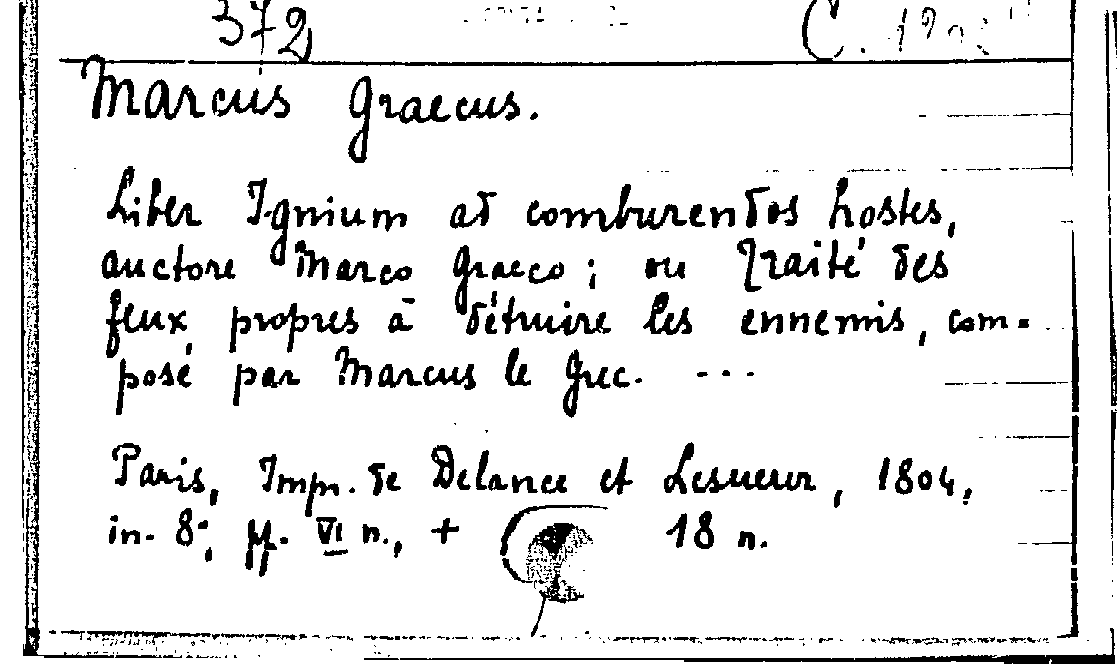 372 C.
Marcus Graecus.
Liber Ignium ad comburendos hostes,
auctore Marco Graeco; ou Traité des
feux propres à détruire les ennemis, com-
posé par Marcus le Grec. ...
Paris, Impr. de Delance et Lesueur, 1804,
in-8°, pp. VI n., + 18 n.